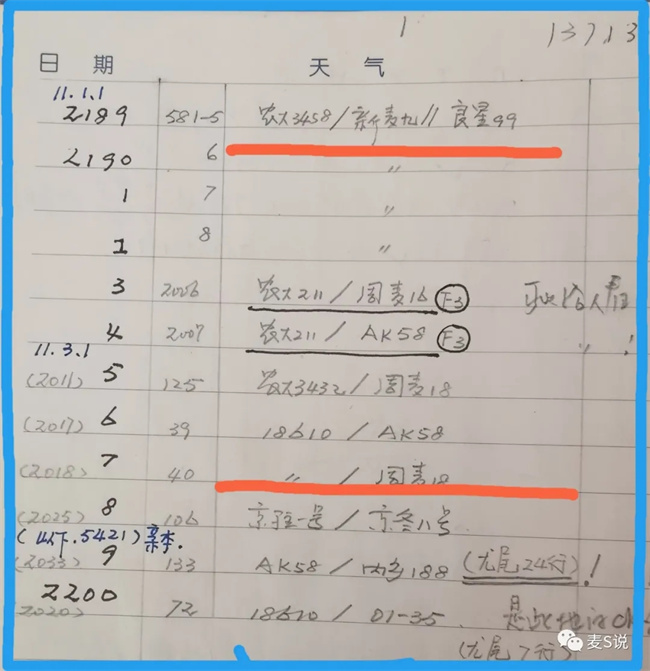 1 137.13
日 期 天 气
11.1.1
2189 581-5 农大3458/新麦九//良星99
2190 6 〃
1 7 〃
1 8 〃
3 2006 农大211/周麦16 F3
4 2007 农大211/AK58 F3 〃 !
11.3.1
(2011) 5 125 农大3432/周麦18
(2017) 6 39 18610/AK58
(2018) 7 40 〃/周麦18
(2025) 8 106 京/京冬八号
(以下.5421)
(2033) 9 133 AK58/内乡188 (尤尾24行)!
2200
(2020) 72 18610/01-35
(尤尾7行)
麦S说